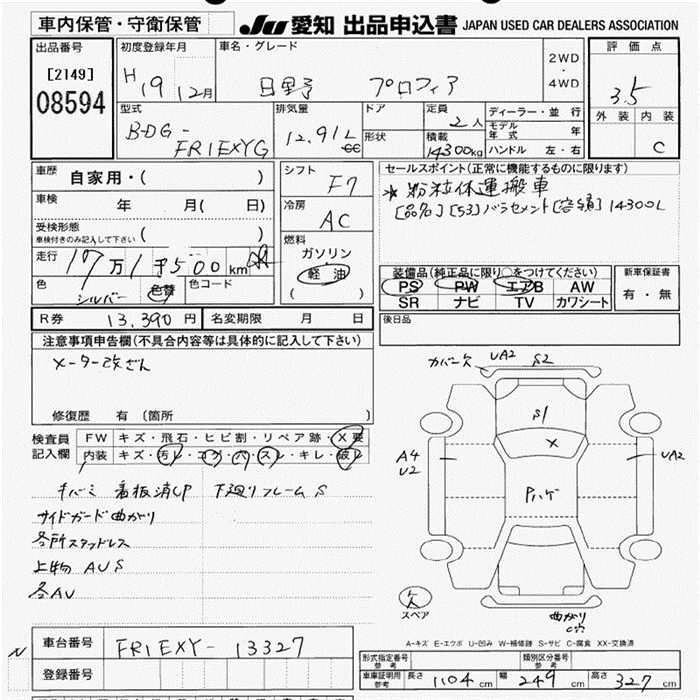 車内保管・守衛保管 JU 愛知 出品申込書 JAPAN USED CAR DEALERS ASSOCIATION
出品番号 初度登録年月 車名・グレード 2WD・4WD 評価点
[2149] 08594 H19 12月 日野 プロフィア 3.5
型式 排気量 ドア 定員 ディーラー・並行 外装 内装
BDG-FR1EXYG 12.91L cc 形状 2人 モデル年式 年
積載 14300kg ハンドル 左・右 C
車歴 自家用・( ) シフト F7 セールスポイント(正常に機能するものに限ります)
車検 年 月( 日) 冷房 AC ※粉粒体運搬車
受検形態 ( ) [品名][53]バラセメント[容積]14300L
車検付きのみ記入して下さい 燃料
走行 17万1千500km ガソリン
色 シルバー 色替 色コード 軽油 ( )
装備品(純正品に限り○をつけてください) 新車保証書
PS PW エアB AW 有・無
SR ナビ TV カワシート
R券 13,390円 名変期限 月 日 後日品
注意事項申告欄(不具合内容等は具体的に記入して下さい)
メーター改ざん
修復歴 有(箇所 )
検査員記入欄 FW キズ・飛石・ヒビ割・リペア跡・X要
内装 キズ・汚レ・コゲ・穴・スレ・キレ・破レ
キバミ 看板消しP 下廻りフレームS
サイドガード曲がり
各所スタッドレス
上物 AUS
各AU
カバー欠 UA2 S2
S1
X
A4 U2
UA2
Pハゲ
欠
スペア
曲がり C穴
A-キズ E-エクボ U-凹み W-補修跡 S-サビ C-腐食 XX-交換済
N 車台番号 FR1EXY-13327
登録番号
形式指定番号 参考 類別区分番号 参考
車庫証明用参考 長さ 1104cm 幅 249cm 高さ 327cm